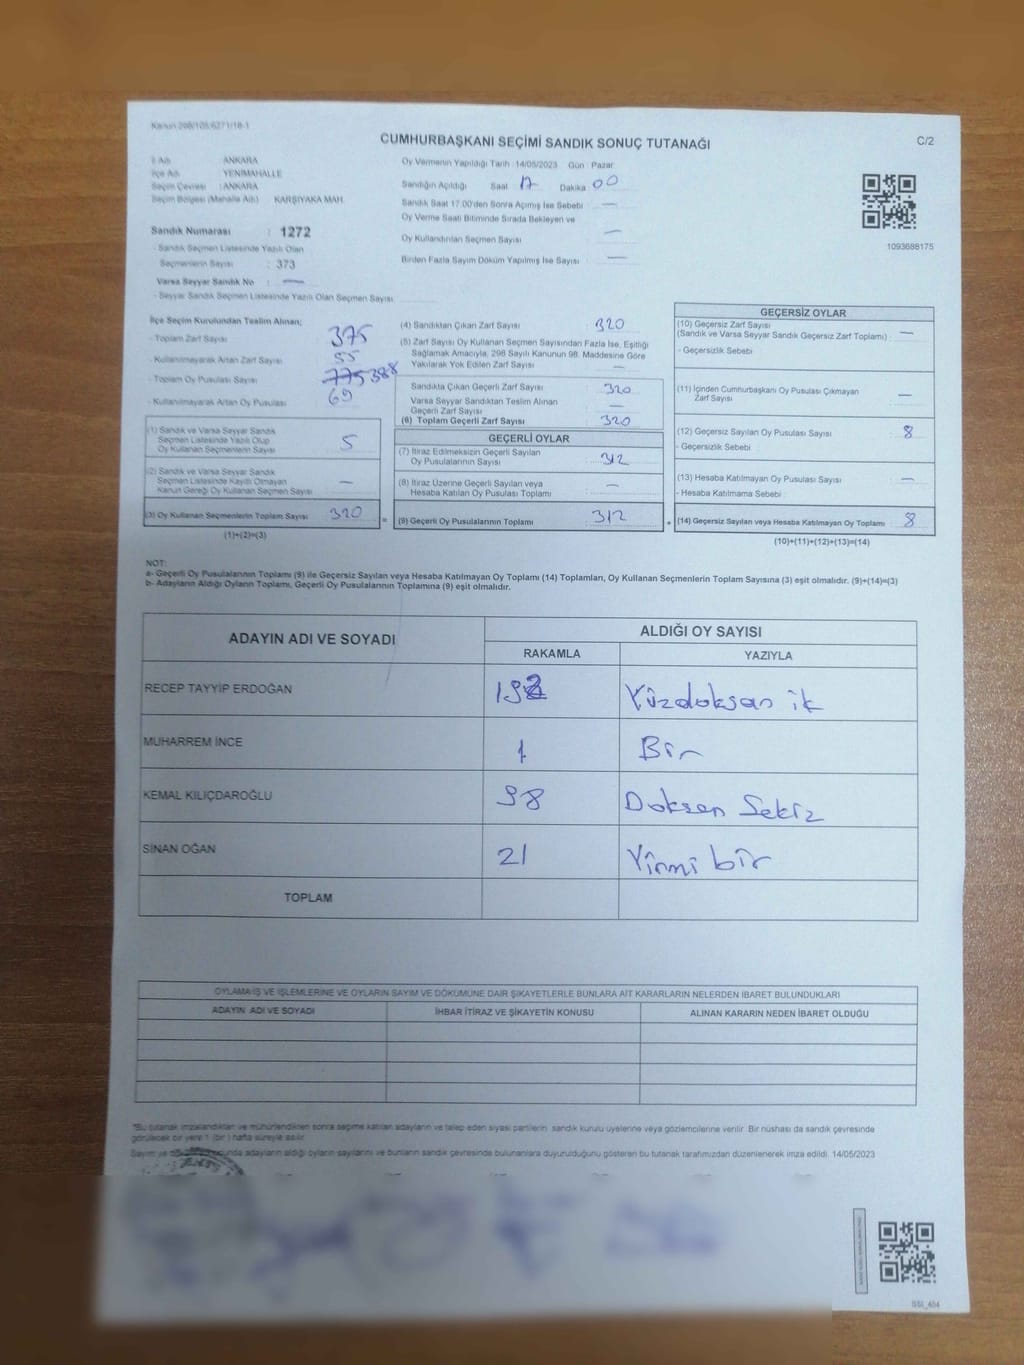 Kanun 298/105.6271/18-1
CUMHURBAŞKANI SEÇİMİ SANDIK SONUÇ TUTANAĞI
C/2
İl Adı : ANKARA
İlçe Adı : YENİMAHALLE
Seçim Çevresi : ANKARA
Seçim Bölgesi (Mahalle Adı) KARŞIYAKA MAH.
Sandık Numarası : 1272
- Sandık Seçmen Listesinde Yazılı Olan
Seçmenlerin Sayısı : 373
Varsa Seyyar Sandık No : —
- Seyyar Sandık Seçmen Listesinde Yazılı Olan Seçmen Sayısı
Oy Vermenin Yapıldığı Tarih : 14/05/2023 Gün : Pazar
Sandığın Açıldığı Saat 17 Dakika 00
Sandık Saat 17.00'den Sonra Açılmış İse Sebebi —
Oy Verme Saati Bitiminde Sırada Bekleyen ve
Oy Kullandırılan Seçmen Sayısı —
Birden Fazla Sayım Döküm Yapılmış İse Sayısı —
1093688175
İlçe Seçim Kurulundan Teslim Alınan;
- Toplam Zarf Sayısı 375
- Kullanılmayarak Artan Zarf Sayısı 55
- Toplam Oy Pusulası Sayısı 775 388
- Kullanılmayarak Artan Oy Pusulası 69
(1) Sandık ve Varsa Seyyar Sandık
Seçmen Listesinde Yazılı Olup
Oy Kullanan Seçmenlerin Sayısı 5
(2) Sandık ve Varsa Seyyar Sandık
Seçmen Listesinde Kayıtlı Olmayan
Kanun Gereği Oy Kullanan Seçmen Sayısı —
(3) Oy Kullanan Seçmenlerin Toplam Sayısı 320
(1)+(2)=(3)
(4) Sandıktan Çıkan Zarf Sayısı : 320
(5) Zarf Sayısı Oy Kullanan Seçmen Sayısından Fazla İse, Eşitliği
Sağlamak Amacıyla, 298 Sayılı Kanunun 98. Maddesine Göre
Yakılarak Yok Edilen Zarf Sayısı —
Sandıkta Çıkan Geçerli Zarf Sayısı : 320
Varsa Seyyar Sandıktan Teslim Alınan
Geçerli Zarf Sayısı : —
(6) Toplam Geçerli Zarf Sayısı : 320
GEÇERLİ OYLAR
(7) İtiraz Edilmeksizin Geçerli Sayılan
Oy Pusulalarının Sayısı : 312
(8) İtiraz Üzerine Geçerli Sayılan veya
Hesaba Katılan Oy Pusulası Toplamı : —
(9) Geçerli Oy Pusulalarının Toplamı : 312
GEÇERSİZ OYLAR
(10) Geçersiz Zarf Sayısı
(Sandık ve Varsa Seyyar Sandık Geçersiz Zarf Toplamı) : —
- Geçersizlik Sebebi
(11) İçinden Cumhurbaşkanı Oy Pusulası Çıkmayan
Zarf Sayısı —
(12) Geçersiz Sayılan Oy Pusulası Sayısı : 8
- Geçersizlik Sebebi
(13) Hesaba Katılmayan Oy Pusulası Sayısı : —
- Hesaba Katılmama Sebebi :
(14) Geçersiz Sayılan veya Hesaba Katılmayan Oy Toplamı : 8
(10)+(11)+(12)+(13)=(14)
NOT:
a- Geçerli Oy Pusulalarının Toplamı (9) ile Geçersiz Sayılan veya Hesaba Katılmayan Oy Toplamı (14) Toplamları, Oy Kullanan Seçmenlerin Toplam Sayısına (3) eşit olmalıdır. (9)+(14)=(3)
b- Adayların Aldığı Oyların Toplamı, Geçerli Oy Pusulalarının Toplamına (9) eşit olmalıdır.
ADAYIN ADI VE SOYADI
ALDIĞI OY SAYISI
RAKAMLA YAZIYLA
RECEP TAYYİP ERDOĞAN 192 Yüzdoksan ik
MUHARREM İNCE 1 Bir
KEMAL KILIÇDAROĞLU 98 Doksen Sekiz
SİNAN OĞAN 21 Yirmi bir
TOPLAM
OYLAMA İŞ VE İŞLEMLERİNE VE OYLARIN SAYIM VE DÖKÜMÜNE DAİR ŞİKAYETLERLE BUNLARA AİT KARARLARIN NELERDEN İBARET BULUNDUKLARI
ADAYIN ADI VE SOYADI İHBAR İTİRAZ VE ŞİKAYETİN KONUSU ALINAN KARARIN NEDEN İBARET OLDUĞU
*Bu tutanak imzalandıktan ve mühürlendikten sonra seçime katılan adayların ve talep eden siyasi partilerin sandık kurulu üyelerine veya gözlemcilerine verilir. Bir nüshası da sandık çevresinde
görülecek bir yere 1 (bir ) hafta süreyle asılır.
Sayım ve adayların aldığı oyların sayılarını ve bunların sandık çevresinde bulunanlara duyurulduğunu gösteren bu tutanak tarafımızdan düzenlenerek imza edildi. 14/05/2023